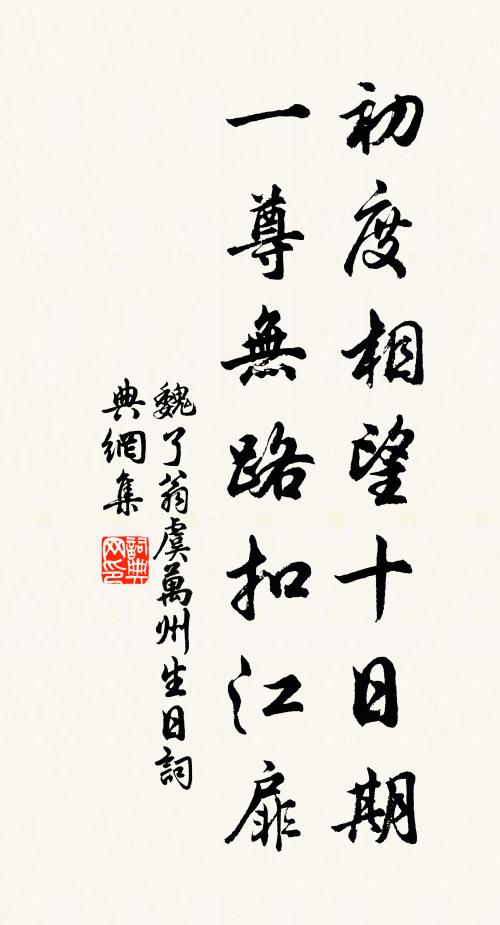 初度相望十日期
一尊無路扣江扉
魏了翁虞萬州生日詞
典網集
詞典
网印